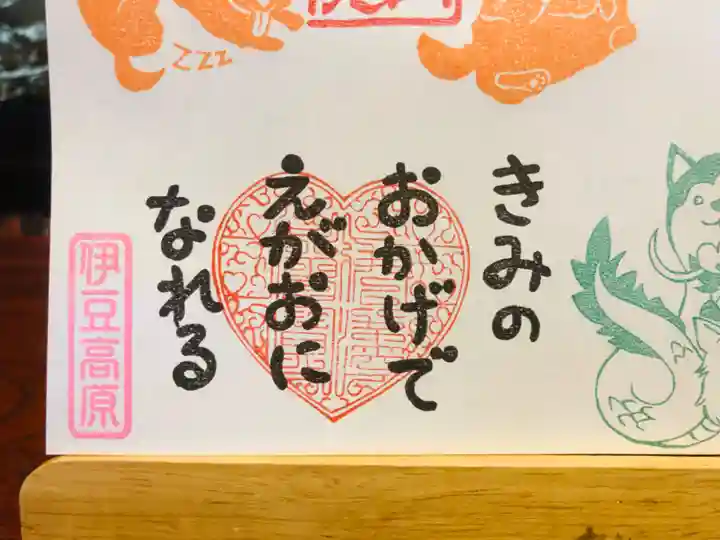 zzz
きみの
おかげで
えがおに
なれる
伊豆高原